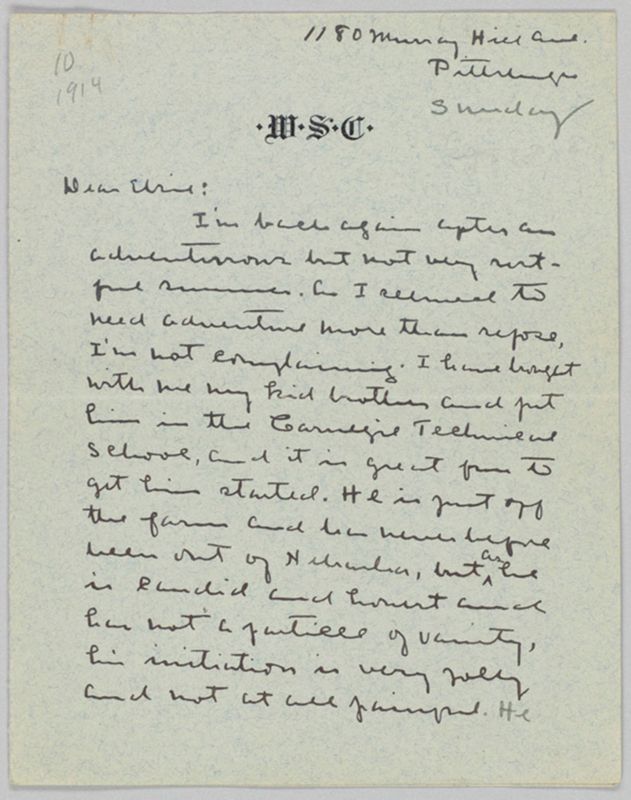 10
1914
1180 Murray Hill Ave.
Pittsburgh
Sunday
·W·S·C·
Dear Elsie:
I'm back again after an
adventurous but not very rest-
ful summer. As I seemed to
need adventure more than repose,
I'm not complaining. I have brought
with me my kid brother and put
him in the Carnegie Technical
School, and it is great fun to
get him started. He is just off
the farm and has never before
been out of Nebraska, but as he
is candid and honest and
has not a particle of vanity,
his initiation is very jolly
and not at all painful. He